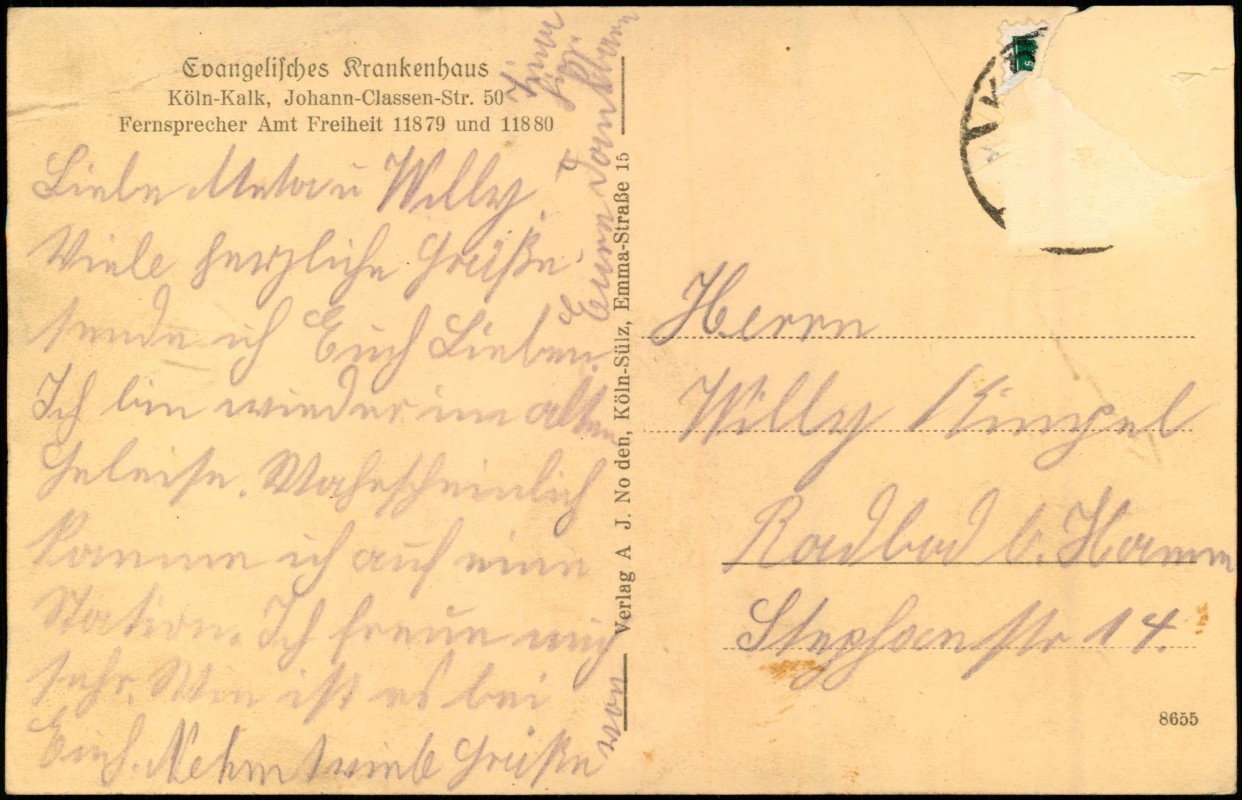 Evangelisches Krankenhaus
Köln-Kalk, Johann-Classen-Str. 50
Fernsprecher Amt Freiheit 11879 und 11880
Liebe Meta u Willy.
Viele herzliche Grüße
sende ich Euch Lieben.
Ich bin wieder im alten
Geleise. Wahrscheinlich
komme ich auf eine
Station. Ich freue mich
sehr. Wie ist es bei
Euch. Nehmt viele Grüße
von
Eurer dankbaren
Verlag A J. No den, Köln-Sülz, Emma-Straße 15
Herrn
Willy Kinzel
Radbod b. Hamm
Stephanstr 14.
8655